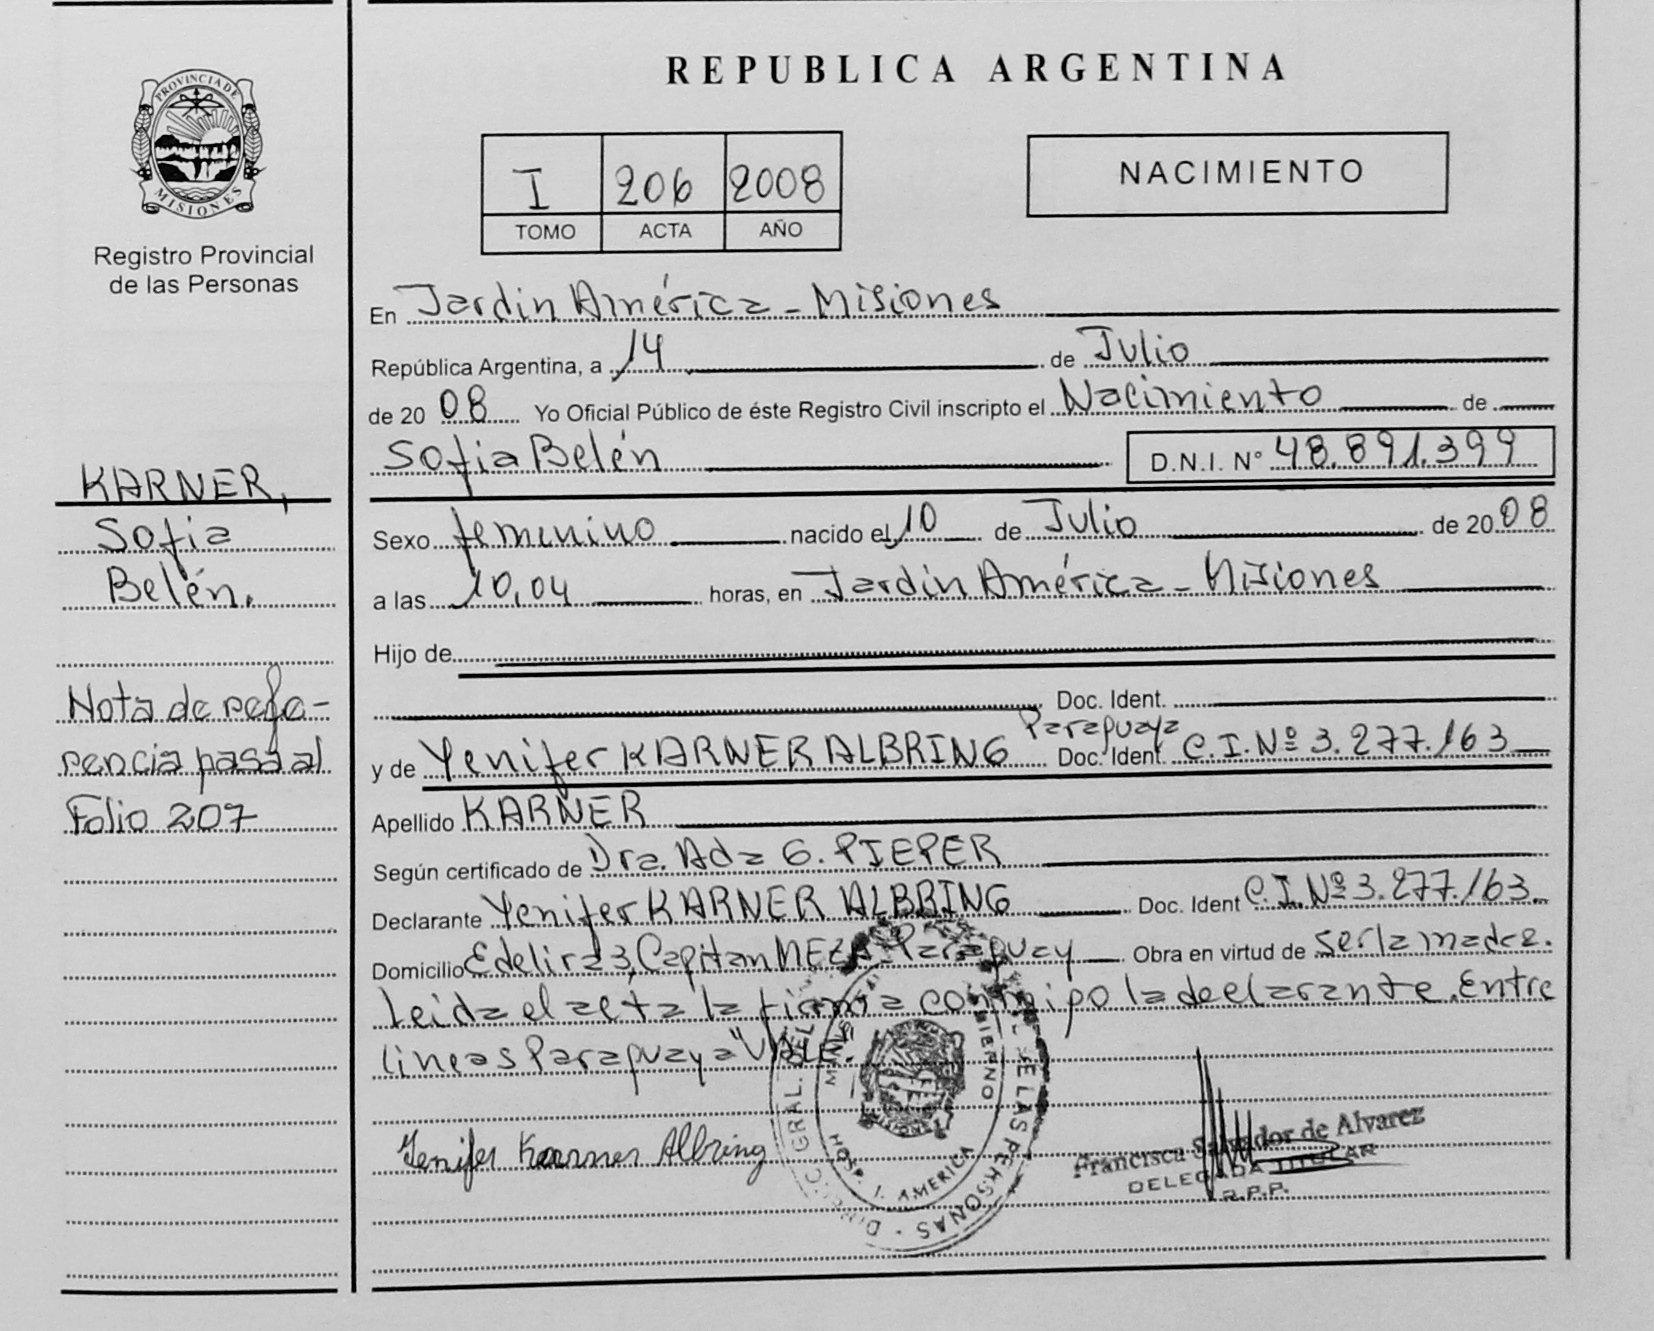 PROVINCIA DE
MISIONES
Registro Provincial
de las Personas
KARNER,
Sofia
Belén.
Nota de refe-
rencia pasa al
Folio 207
REPUBLICA ARGENTINA
I 206 2008
TOMO ACTA AÑO
NACIMIENTO
En Jardin América - Misiones
República Argentina, a 14 de Julio
de 20 08 Yo Oficial Público de éste Registro Civil inscripto el Nacimiento de
Sofia Belén D.N.I. N° 48.891.399
Sexo femenino nacido el 10 de Julio de 20 08
a las 10,04 horas, en Jardin América - Misiones
Hijo de
Doc. Ident.
Paraguaya
y de Yenifer KARNER ALBRING Doc. Ident. C.I. Nº 3.277.163
Apellido KARNER
Según certificado de Dra. Ada G. PIEPER
Declarante Yenifer KARNER ALBRING Doc. Ident C.I. Nº 3.277.163
Domicilio Edelira 3, Capitan MEZA - Paraguay Obra en virtud de ser la madre.
Leida el acta la firma conmigo la declarante. Entre
lineas Paraguaya "VALE".
Yenifer Karner Albring
DIREC. GRAL. DEL DE LAS PERSONAS
J. AMERICA
Francisca Salvador de Alvarez
DELEGADA TITULAR
R.P.P.